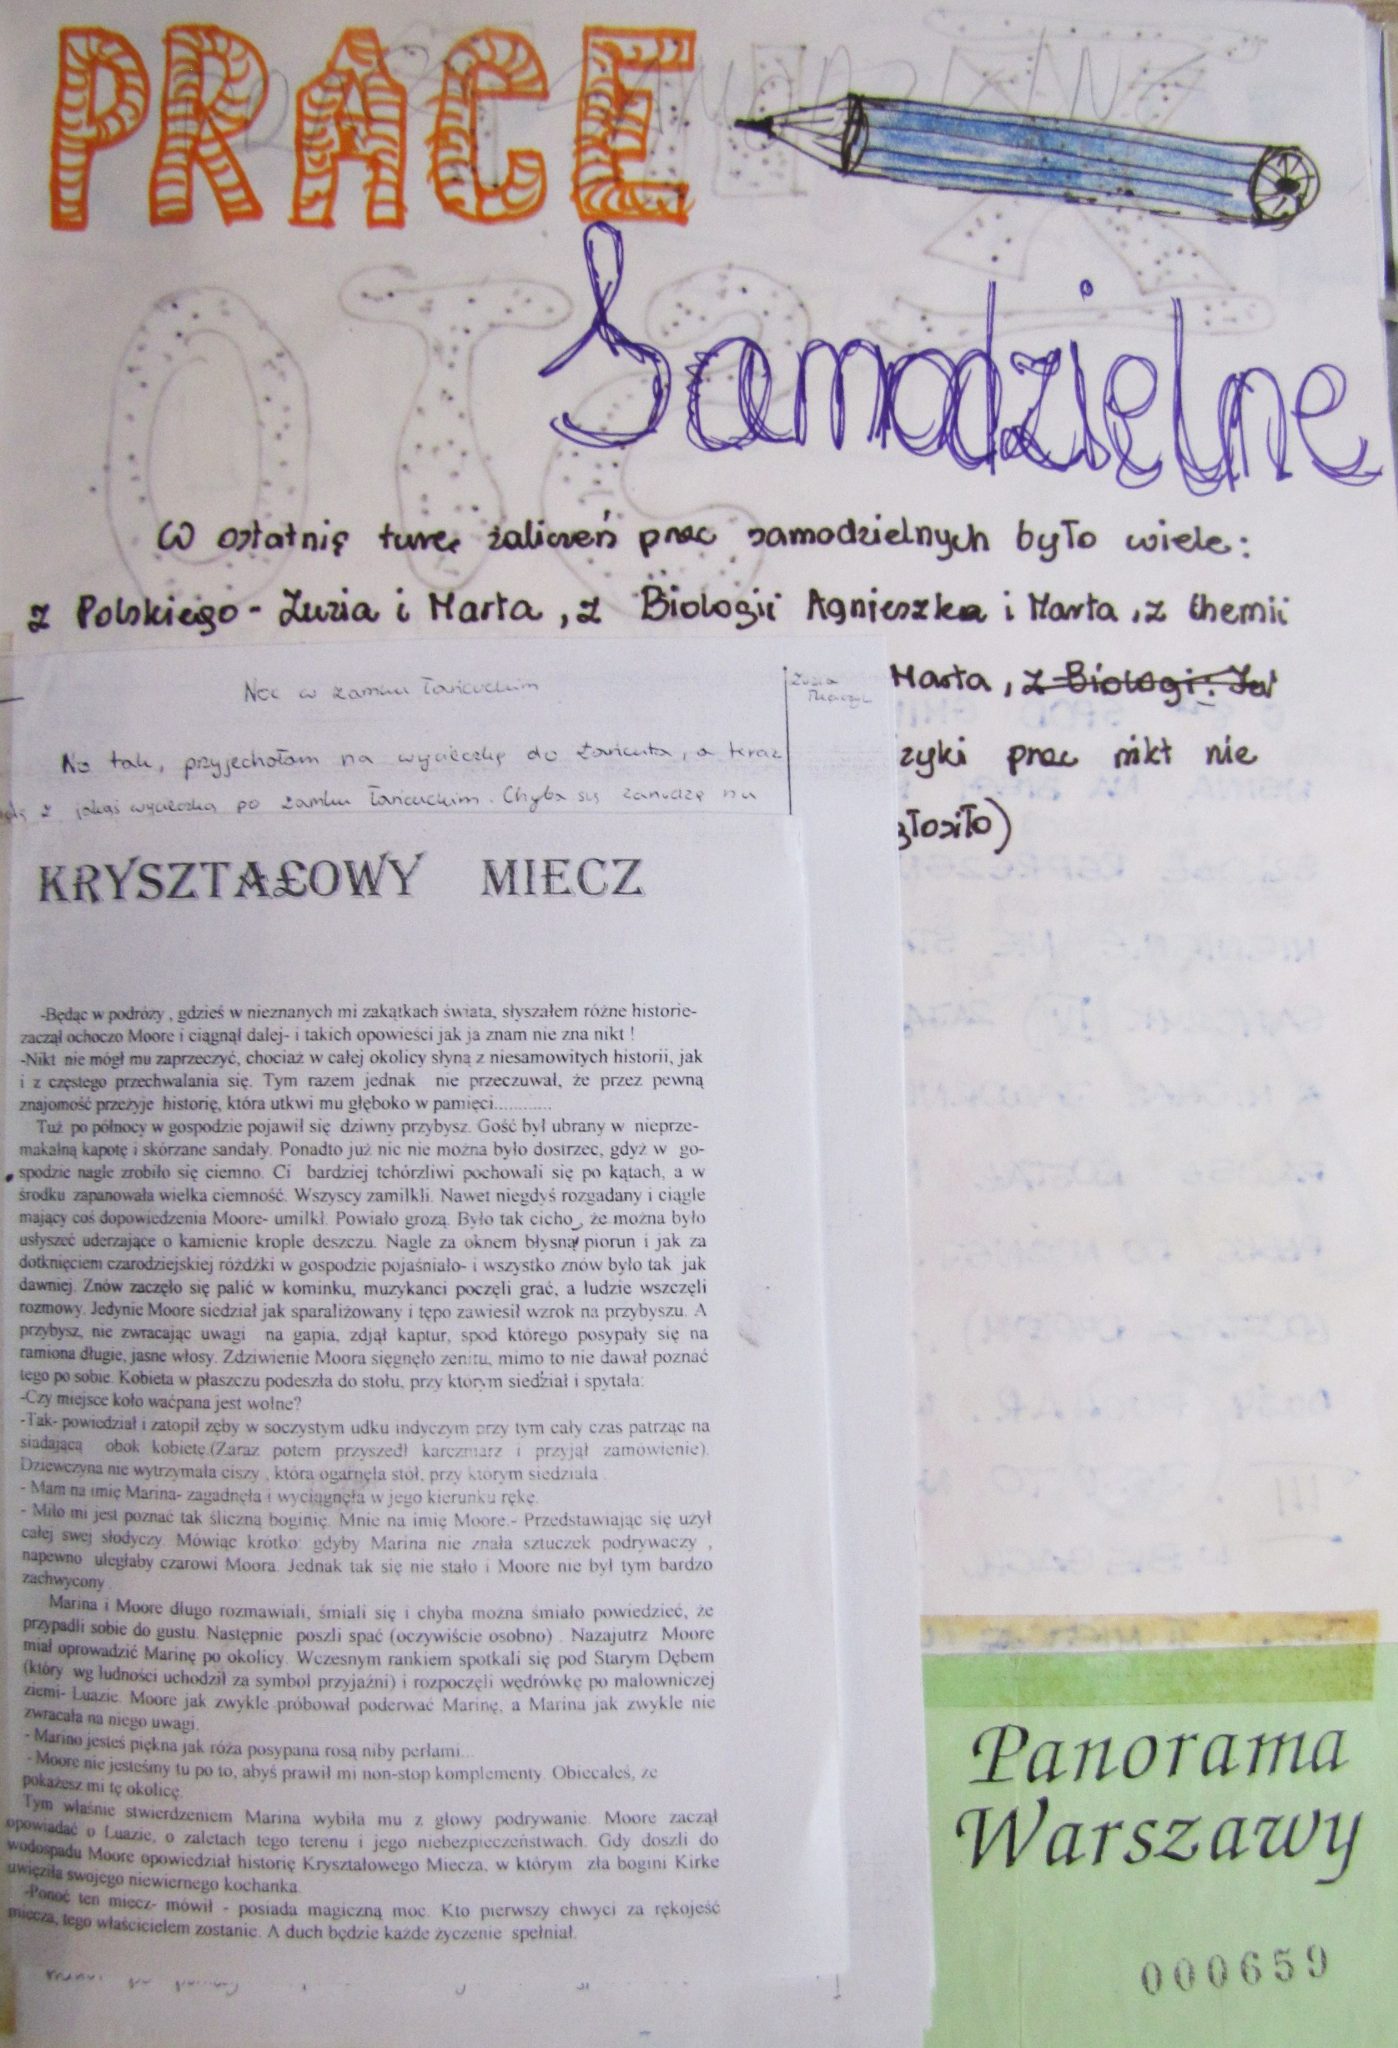 PRACE
Samodzielne
W ostatnię turę zaliczeń prac samodzielnych było wiele:
z Polskiego - Zuzia i Marta, z Biologii Agnieszka i Marta, z Chemii
Marta, z Biologi:
zyki prac nikt nie
głosiło)
Noc w zamku łańcuckim
Zuzia
No tak, przyjechałam na wycieczkę do Łańcuta, a teraz
z jakąś wycieczką po zamku łańcuckim. Chyba się zanudzę na
KRYSZTAŁOWY MIECZ
-Będąc w podróży , gdzieś w nieznanych mi zakątkach świata, słyszałem różne historie-
zaczął ochoczo Moore i ciągnął dalej- i takich opowieści jak ja znam nie zna nikt !
-Nikt nie mógł mu zaprzeczyć, chociaż w całej okolicy słyną z niesamowitych historii, jak
i z częstego przechwalania się. Tym razem jednak nie przeczuwał, że przez pewną
znajomość przeżyje historię, która utkwi mu głęboko w pamięci............
Tuż po północy w gospodzie pojawił się dziwny przybysz. Gość był ubrany w nieprze-
makalną kapotę i skórzane sandały. Ponadto już nic nie można było dostrzec, gdyż w go-
spodzie nagle zrobiło się ciemno. Ci bardziej tchórzliwi pochowali się po kątach, a w
środku zapanowała wielka ciemność. Wszyscy zamilkli. Nawet niegdyś rozgadany i ciągle
mający coś dopowiedzenia Moore- umilkł. Powiało grozą. Było tak cicho , że można było
usłyszeć uderzające o kamienie krople deszczu. Nagle za oknem błysną piorun i jak za
dotknięciem czarodziejskiej różdżki w gospodzie pojaśniało- i wszystko znów było tak jak
dawniej. Znów zaczęło się palić w kominku, muzykanci poczęli grać, a ludzie wszczęli
rozmowy. Jedynie Moore siedział jak sparaliżowany i tępo zawiesił wzrok na przybyszu. A
przybysz, nie zwracając uwagi na gapia, zdjął kaptur, spod którego posypały się na
ramiona długie, jasne włosy. Zdziwienie Moora sięgnęło zenitu, mimo to nie dawał poznać
tego po sobie. Kobieta w płaszczu podeszła do stołu, przy którym siedział i spytała:
-Czy miejsce koło waćpana jest wolne?
-Tak- powiedział i zatopił zęby w soczystym udku indyczym przy tym cały czas patrząc na
siadającą obok kobietę.(Zaraz potem przyszedł karczmarz i przyjął zamówienie).
Dziewczyna nie wytrzymała ciszy , która ogarnęła stół, przy którym siedziała .
- Mam na imię Marina- zagadnęła i wyciągnęła w jego kierunku rękę.
- Miło mi jest poznać tak śliczną boginię. Mnie na imię Moore.- Przedstawiając się użył
całej swej słodyczy. Mówiąc krótko: gdyby Marina nie znała sztuczek podrywaczy ,
napewno uległaby czarowi Moora. Jednak tak się nie stało i Moore nie był tym bardzo
zachwycony .
Marina i Moore długo rozmawiali, śmiali się i chyba można śmiało powiedzieć, że
przypadli sobie do gustu. Następnie poszli spać (oczywiście osobno) . Nazajutrz Moore
miał oprowadzić Marinę po okolicy. Wczesnym rankiem spotkali się pod Starym Dębem
(który wg ludności uchodził za symbol przyjaźni) i rozpoczęli wędrówkę po malowniczej
ziemi- Luazie. Moore jak zwykle próbował poderwać Marinę, a Marina jak zwykle nie
zwracała na niego uwagi.
- Marino jesteś piękna jak róża posypana rosą niby perłami...
- Moore nie jesteśmy tu po to, abyś prawił mi non-stop komplementy. Obiecałeś, że
pokażesz mi tę okolicę.
Tym właśnie stwierdzeniem Marina wybiła mu z głowy podrywanie. Moore zaczął
opowiadać o Luazie, o zaletach tego terenu i jego niebezpieczeństwach. Gdy doszli do
wodospadu Moore opowiedział historię Kryształowego Miecza, w którym zła bogini Kirke
uwięziła swojego niewiernego kochanka.
-Ponoć ten miecz- mówił - posiada magiczną moc. Kto pierwszy chwyci za rękojeść
miecza, tego właścicielem zostanie. A duch będzie każde życzenie spełniał.
Panorama
Warszawy
000659